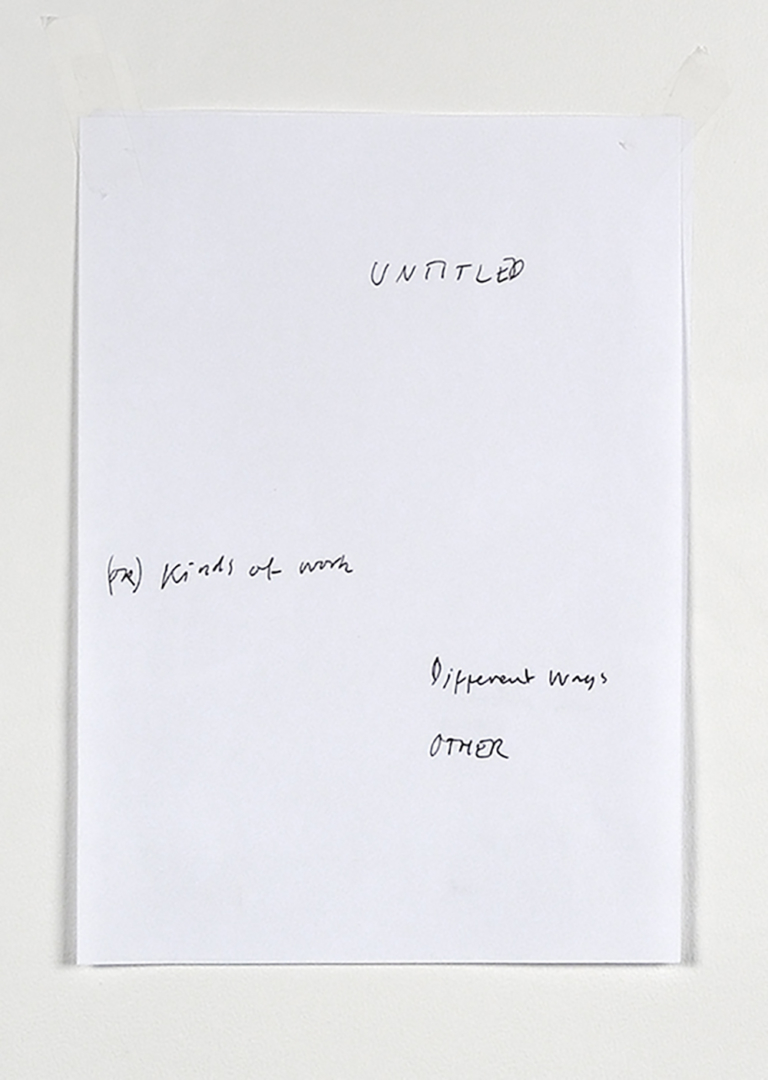 UNTITLED
(OR) Kinds of work
Different ways
OTHER